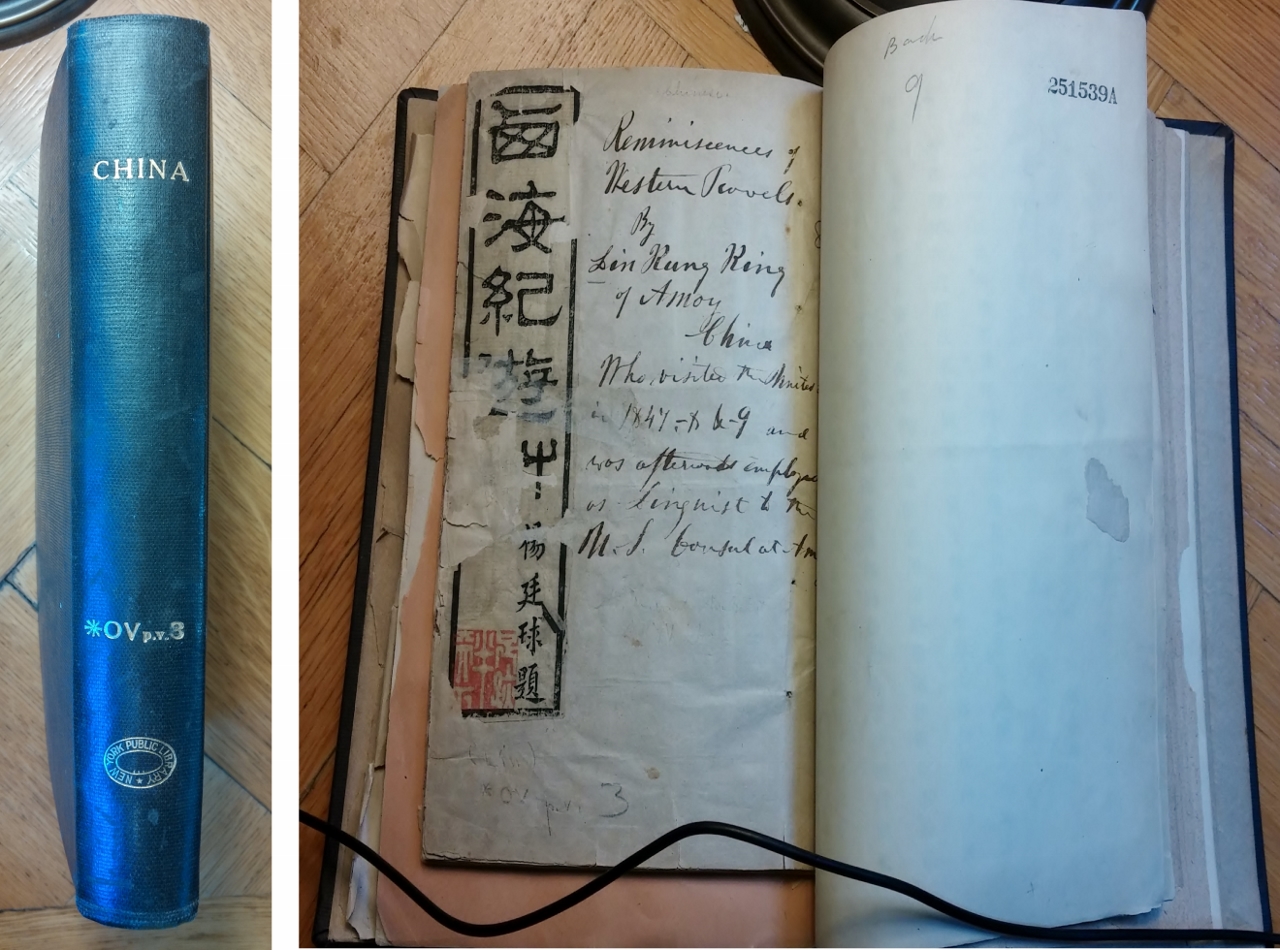 CHINA
*OV p.v.3
NEW YORK PUBLIC LIBRARY
西海紀遊草
楊廷球題
Reminiscences of
Western Travels.
By
Lin Kung King
of Amoy
China
Who visited the Unites
in 1847-8 & -9 and
was afterwards employe
as Linguist to the
U.S. Consul at Am
3
Back
9
251539A